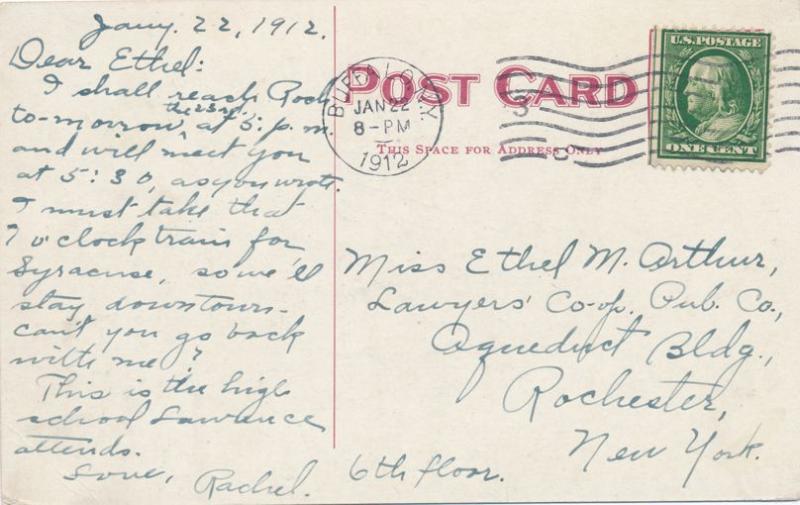 Jany. 22, 1912.
Dear Ethel:
I shall reach Roch
to-morrow, the 23rd, at 5: p.m.
and will meet you
at 5:30, as you wrote.
I must take that
7 o'clock train for
Syracuse, so we'll
stay downtown-
can't you go back
with me?
This is the high
school Lawrence
attends.
Love, Rachel.
POST CARD
THIS SPACE FOR ADDRESS ONLY
BUFFALO, N.Y.
JAN 22
8-PM
1912
3
U.S. POSTAGE
ONE CENT
Miss Ethel M. Arthur,
Lawyers' Co-op. Pub. Co.,
Aqueduct Bldg.,
Rochester,
New York.
6th floor.